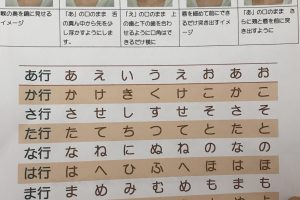 親の歯を鏡に見せる
イメージ
「あ」の口のまま 舌
の真ん中から先を少
し浮かすようにします。
「え」の口のまま 上
の歯と下の歯を合わせ
るように口角はで
きるだけ横に
唇を細めて前にでき
るだけ突き出すイメ
ージ
「お」の口のまま さ
らに唇を前に突き
出すように
あ行 あ え い う え お あ お
か行 か け き く け こ か こ
さ行 さ せ し す せ そ さ そ
た行 た て ち つ て と た と
な行 な ね に ぬ ね の な の
は行 は へ ひ ふ へ ほ は ほ
ま行 ま め み む め も ま も